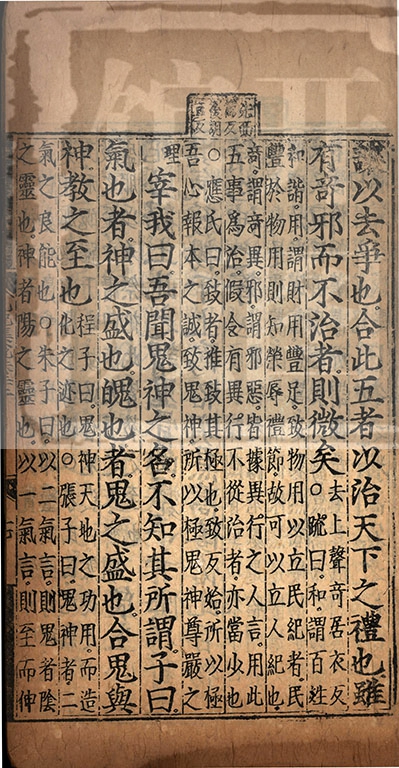 讓以去爭也合此五者以治天下之禮也雖
有奇邪而不治者則微矣
去上聲奇居衣反
○疏曰和謂百姓
和諧用謂財用豐足致物用以立民紀者民
豐於物用則知榮辱禮節故可以立人紀也
奇謂奇異邪謂邪惡皆據異行之人言用此
五事爲治假令有異行不從治者亦當少也
○應氏曰致者推致其極也致反始所以極
吾心報本之誠致鬼神所以極鬼神尊嚴之
理
宰我曰吾聞鬼神之名不知其所謂子曰
氣也者神之盛也魄也者鬼之盛也合鬼與
神教之至也
程子曰鬼神天地之功用而造
化之迹也○張子曰鬼神者二
氣之良能也○朱子曰以二氣言則鬼者陰
之靈也神者陽之靈也以一氣言則至而伸